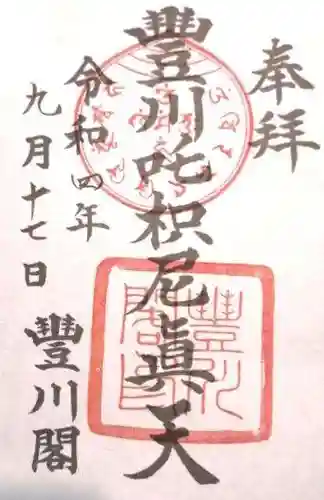 奉拝
豐川吒枳尼眞天
令和四年
九月十七日
豐川閣
豐川閣印